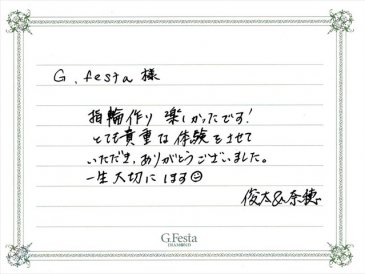 G.festa様
指輪作り 楽しかったです!
とても貴重な体験をさせて
いただき、ありがとうございました。
一生大切にします☺
俊太&奈穂
G.Festa
DIAMOND